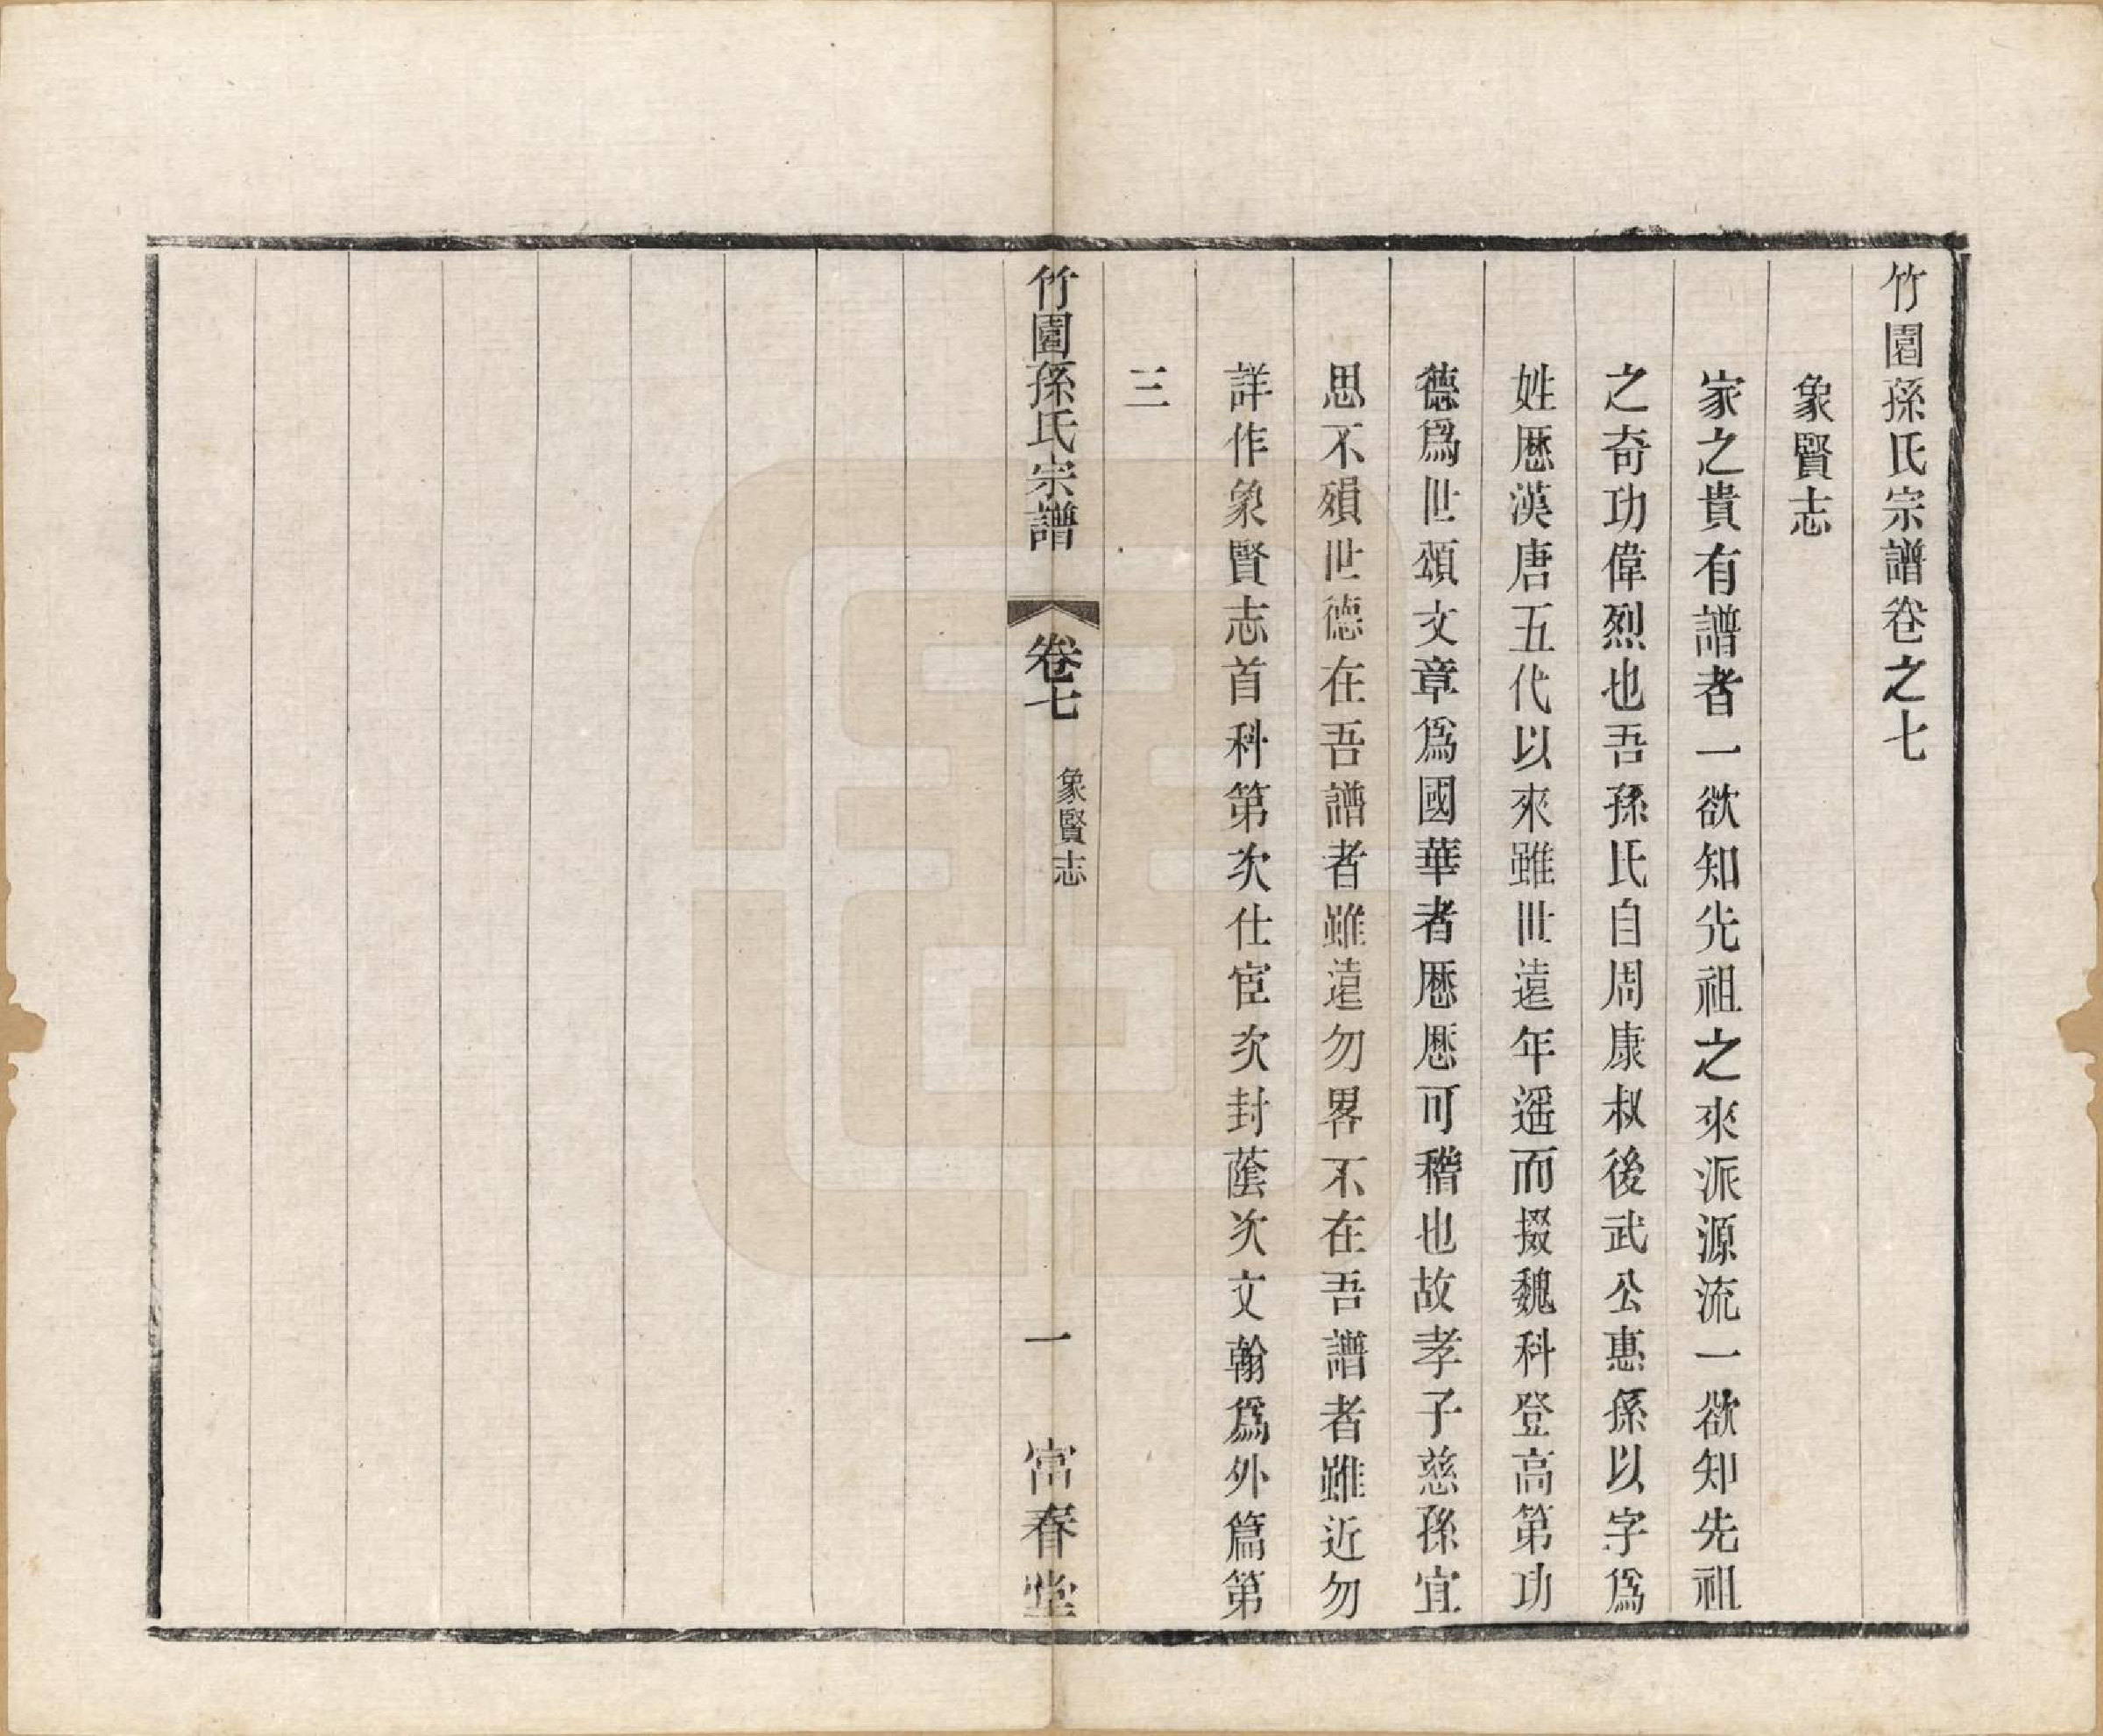 竹園孫氏宗譜卷之七
象賢志
家之貴有譜者一欲知先祖之來派源流一欲知先祖
之奇功偉烈也吾孫氏自周康叔後武公惠孫以字爲
姓厯漢唐五代以來雖世遠年遥而掇魏科登高第功
德爲世頌文章爲國華者厯厯可稽也故孝子慈孫宜
思不殞世德在吾譜者雖遠勿畧不在吾譜者雖近勿
詳作象賢志首科第次仕宦次封蔭次文翰爲外篇第
三
竹園孫氏宗譜 卷七 象賢志 一 富春堂